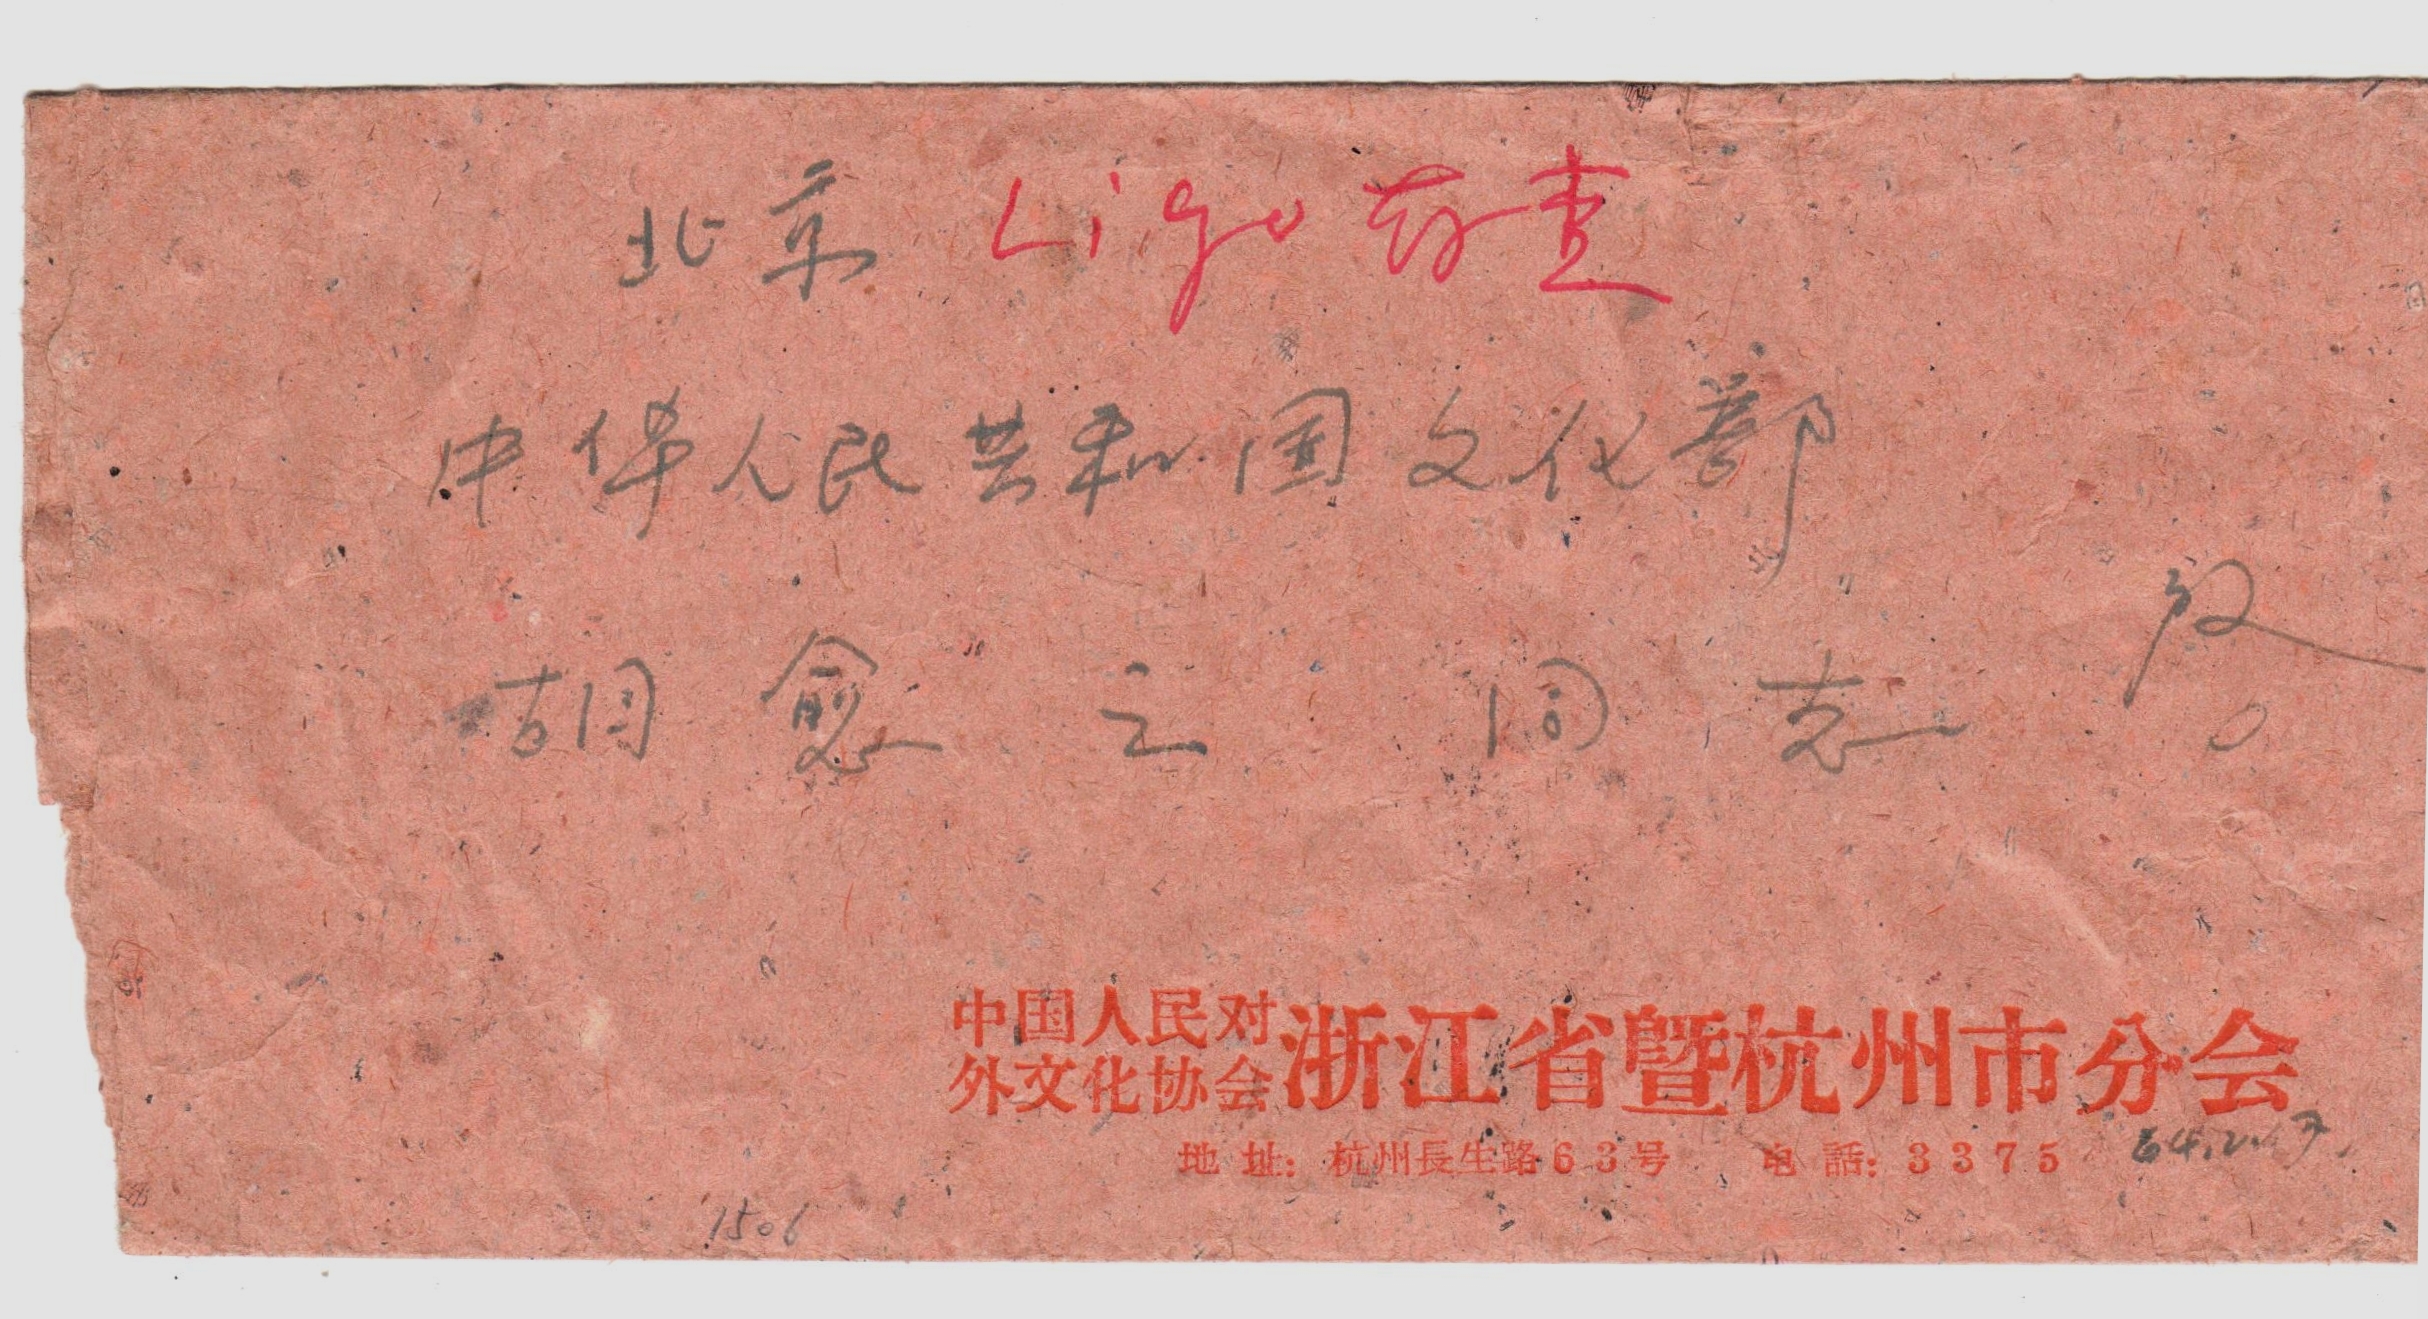 北京 Ligo 存查
中华人民共和国文化部
胡愈之同志 啟
中国人民对
外文化协会
浙江省暨杭州市分会
地址：杭州長生路63号 电話：3375
1506